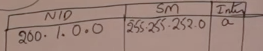 NID SM Inter
200.1.0.0 255.255.252.0 a